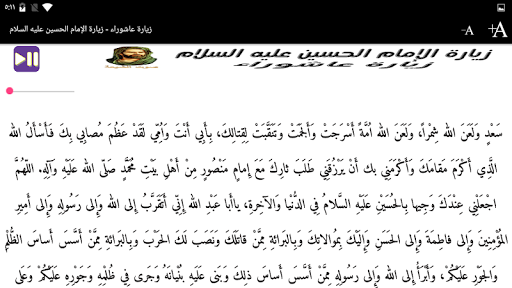 ٥:١١
زيارة عاشوراء - زيارة الإمام الحسين عليه السلام
-A
+A
زيارة الإمام الحسين عليه السلام
زيارة عاشوراء
سَعْدٍ وَلَعَنَ الله شِمْراً، وَلَعَنَ الله أُمَّةً أَسْرَجَتْ وَأَلْجَمَتْ وَتَنَقَّبَتْ لِقِتالِكَ، بِأَبِي أَنْتَ وَاُمِّي لَقَدْ عَظُمَ مُصابِي بِكَ فَأَسْأَلُ الله
الَّذِي أَكْرَمَ مَقامَكَ وَأَكْرَمَنِي بك أَنْ يَرْزُقَنِي طَلَبَ ثارِكَ مَعَ إِمامٍ مَنْصُورٍ مِنْ أَهْلِ بَيْتِ مُحَمَّدٍ صَلّى الله عَلَيْهِ وَآلِهِ. اللّهُمَّ
اجْعَلْنِي عِنْدَكَ وَجِيها بِالحُسَيْنِ عَلَيْهِ السَّلامُ فِي الدُّنْيا وَالآخِرةِ، ياأَبا عَبدِ الله إِنِّي أَتَقَرَّبُ إِلى الله وَإِلى رَسُولِهِ وَإِلى أَمِيرِ
المُؤْمِنِينَ وَإِلى فاطِمَةَ وَإِلى الحَسَنِ وَإِلَيْكَ بِمُوالاتِكَ وَبِالبَرائةِ مِمَّنْ قاتَلَكَ وَنَصَبَ لَكَ الحَرْبَ وَبِالبَرائةِ مِمَّنْ أَسَّسَ أَساسَ الظُّلْمِ
وَالجَوْرِ عَلَيْكُمْ، وَأَبْرَأُ إِلى الله وَإِلى رَسُولِهِ مِمَّنْ أَسَّسَ أَساسَ ذلِكَ وَبَنى عَلَيهِ بُنْيانَهُ وَجَرى فِي ظُلْمِهِ وَجَوْرِهِ عَلَيْكُمْ وَعَلى